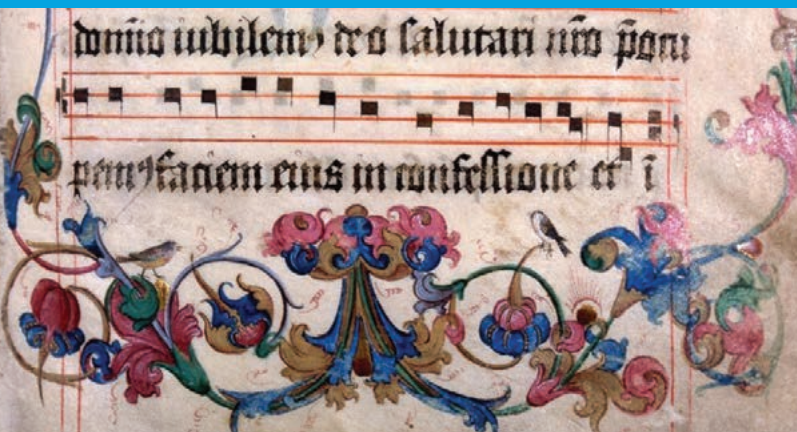 domīo iubilem⁹ deo salutari nr̄o p̄occu
pem⁹ faciem eius in confessione et ī